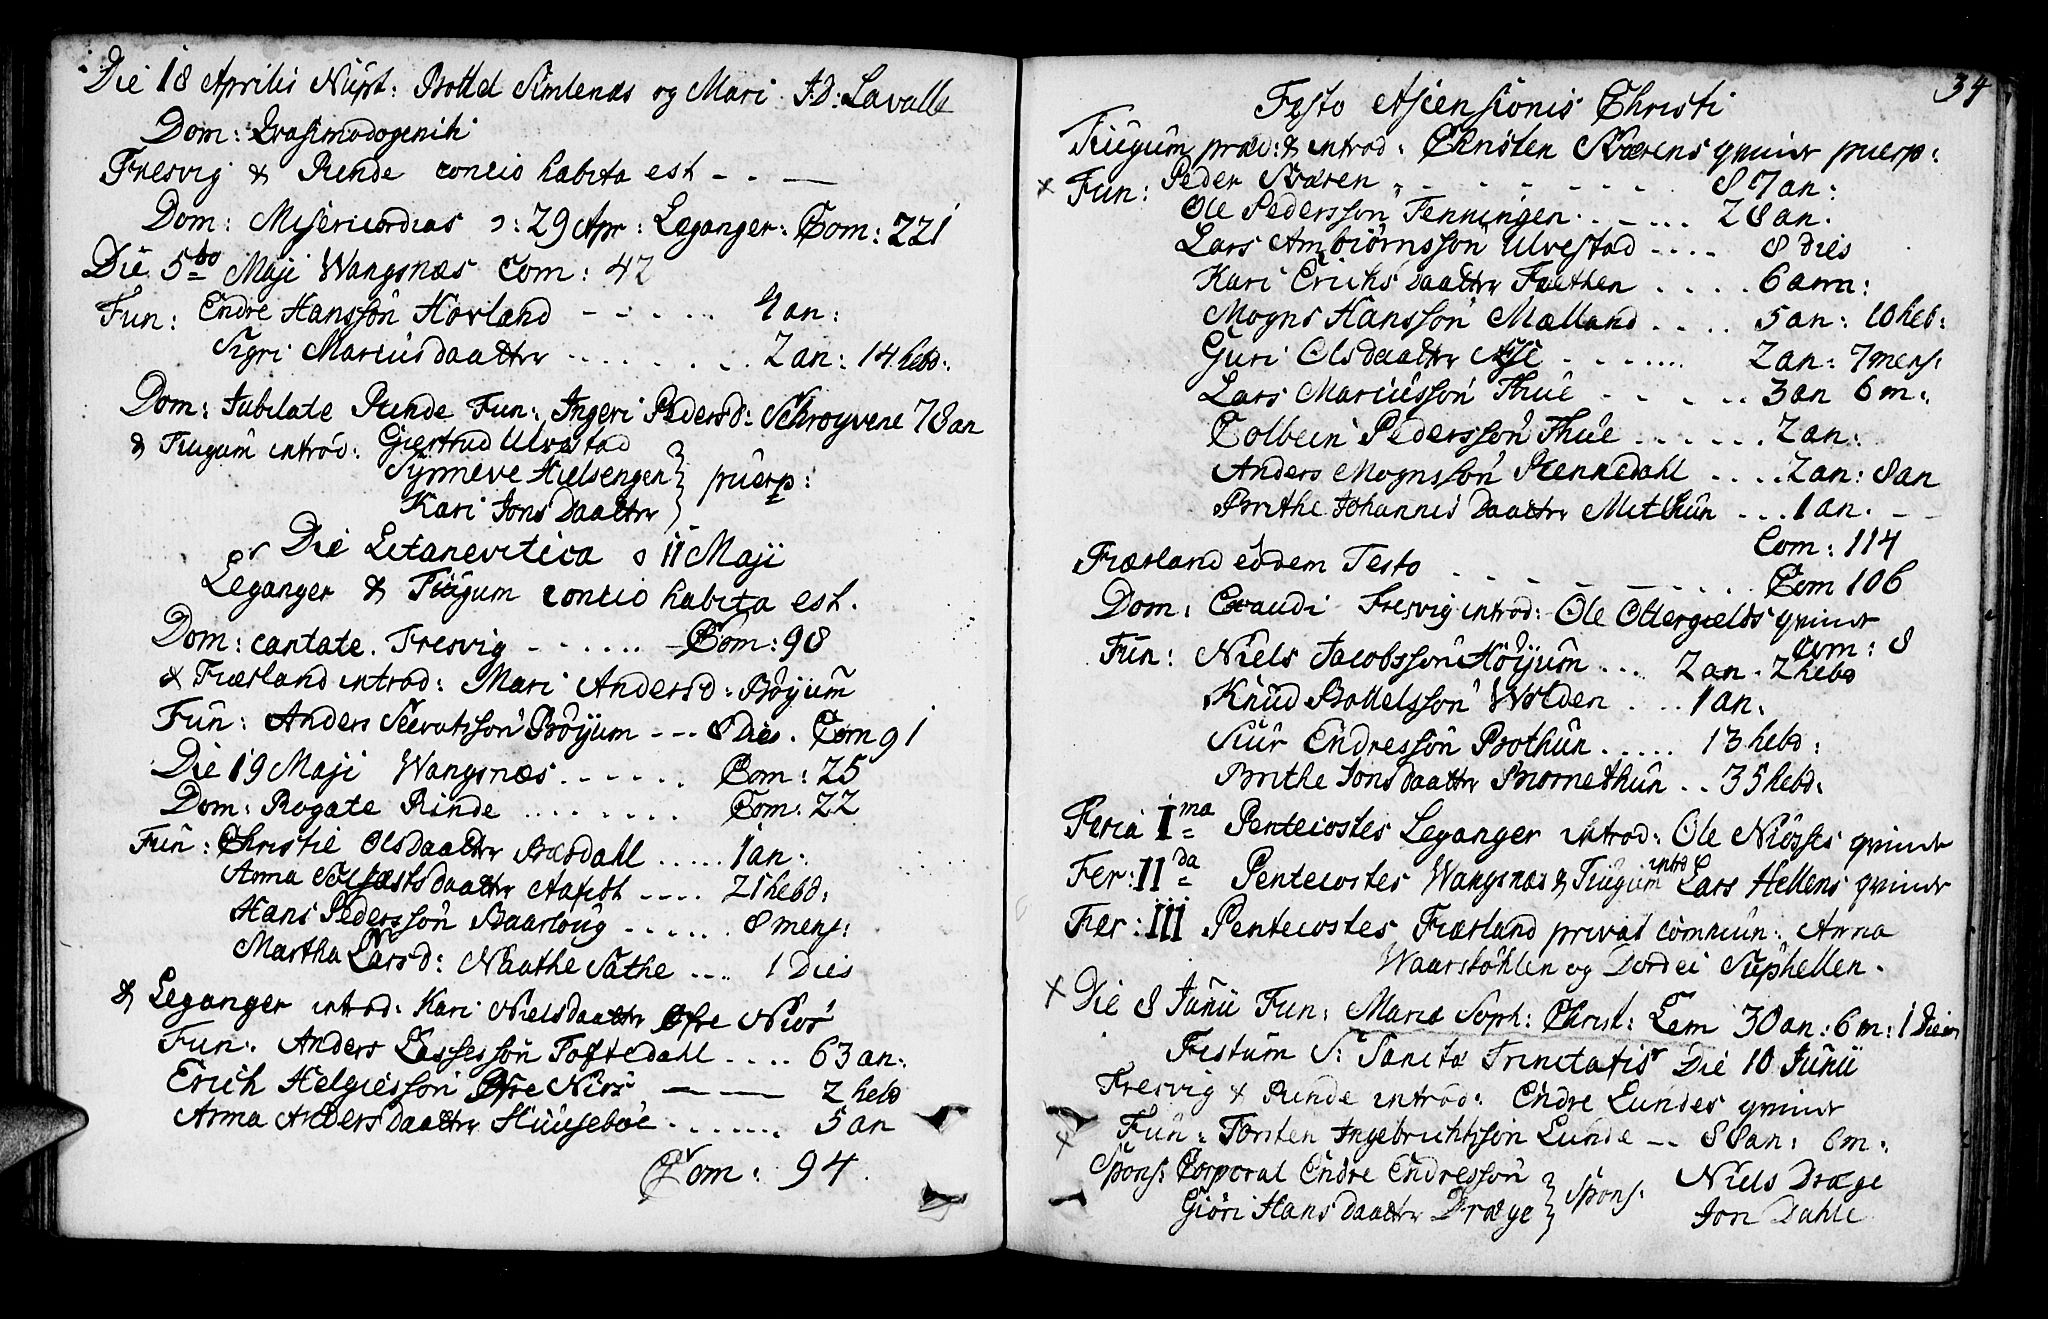 Die 18 Aprilis Nupt: Bottel Simlenæs og Mari J:D: Lavalle
Dom: Qvasimodogeniti
Fresvig & Rinde concio habita est - - -
Dom: Misericordias ɔ: 29 Apr: Leganger: Com: 221
Die 5to Maji Wangsnæs Com: 42
Fun: Endre Hanssön Hovland - - - - - 4 an:
Sigri Mariusdaatter - - - - - 2 an: 14 hebd:
Dom: Jubilate Rinde Fun: Ingeri Pedersd: Schrøyvene 78 an
& Tiugum introd: Giertrud Ulvestad
Synneve Hielsengen } puerp:
Kari Jons Daatter
Die Letanevitica ɔ 11 Maji
Leganger & Tiugum concio habita est.
Dom: cantate. Fresvig - - - - - Com: 98
& Fiærland introd: Mari Andersd: Bøyum
Fun: Anders Siwatssön Bøyum - - - 8 Dies. Com 91
Die 19 Maji Wangsnæs - - - - - - Com: 25
Dom: Rogate Rinde - - - - - - Com: 22
Fun: Christie Olsdaatter Bæsdahl - - - - 1 an:
Anna daatter - - - - 21 hebd:
Hans Pederssön Baarloug - - - - - 8 mens:
Martha Larsd: Naathe Sathe - - - 1 Dies
& Leganger introd: Kari Nielsdaatter Øfre Niøs
Fun: Anders Lassessön Toftedahl - - - - 63 an:
Erich Helgiessön Øfre Niøs - - - 2 hebd
Anna Andersdaatter Huusebøe - - - - - 5 an
Com: 94.
34
Festo Ascensionis Christi
Tiugum præd: & introd: Christen Kværens qvinde puerp:
× Fun: Peder Kværen - - - - - - 87 an:
Ole Pederssön Fenningen - - - - 28 an.
Lars Ambiörnssön Ulvestad - - - - 8 dies
Kari Erichsdaatter Faethen - - - - 6 ann:
Mogns Hanssön Mælland - - - - 5 an: 10 heb:
Guri Olsdaatter Aase - - - - - - 2 an: 7 mens:
Lars Mariussön Thue - - - - - 3 an 6 m:
Colbein Pederssön Thue - - - - - - 2 an:
Anders Mognssön Rennedahl - - - - 2 an: 8 an
Brithe Johannis Daatter Methun - - - 1 an. - -
Com: 114
Fiærland eodem Festo - - - - - - - - Com 106
Dom: Exaudi Fresvig introd: Ole Ottergields qvinde
Com: 8
Fun: Niels Jacobssön Höÿum - - - 2 an. 2 hebd
Knud Bottelssön Wolden - - - - 1 an.
Siur Endressön Bothun - - - - - 13 hebd:
Brithe Jonsdaatter Biornethun - - 35 hebd:
Feria Ima Pentecostes Leganger introd: Ole Niøsses qvinde
Fer: IIda Pentecostes Wangsnæs & Tiugum introd Lars Hellens qvinde
Fer: III Pentecostes Fiærland privat commun: Anna
Waarstöhlen og Dordei Suphellen.
× Die 8 Junii Fun: Maria Soph: Christ: Lem 30 an: 6 m: 1 Diem
Festum S: Sanctæ Trinitatis Die 10 Junii
Fresvig & Rinde introd: Endre Lundes qvinde
× Fun: Torsten Ingebrichtssön Lunde - - 88 an: 6 m:
Spons: Corporal Endre Endressön } Spons: Niels Dræge
Giöri Hansdaatter Dræge } Jon Dahle